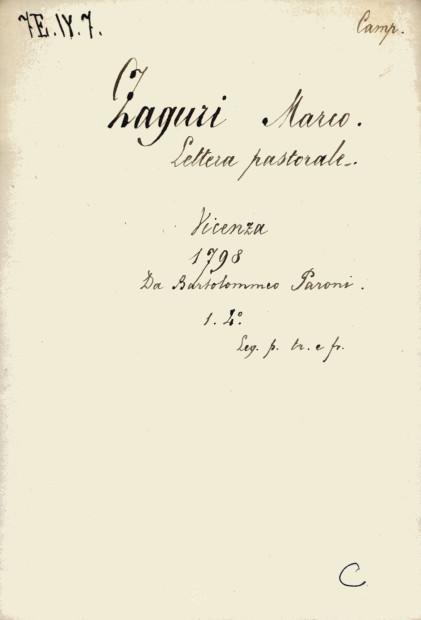 7E.IV.7.
Camp.
Zaguri Marco.
Lettera pastorale.
Vicenza
1798
Da Bartolommeo Paroni.
1. 4º.
Leg. p. tr. e fr.
C